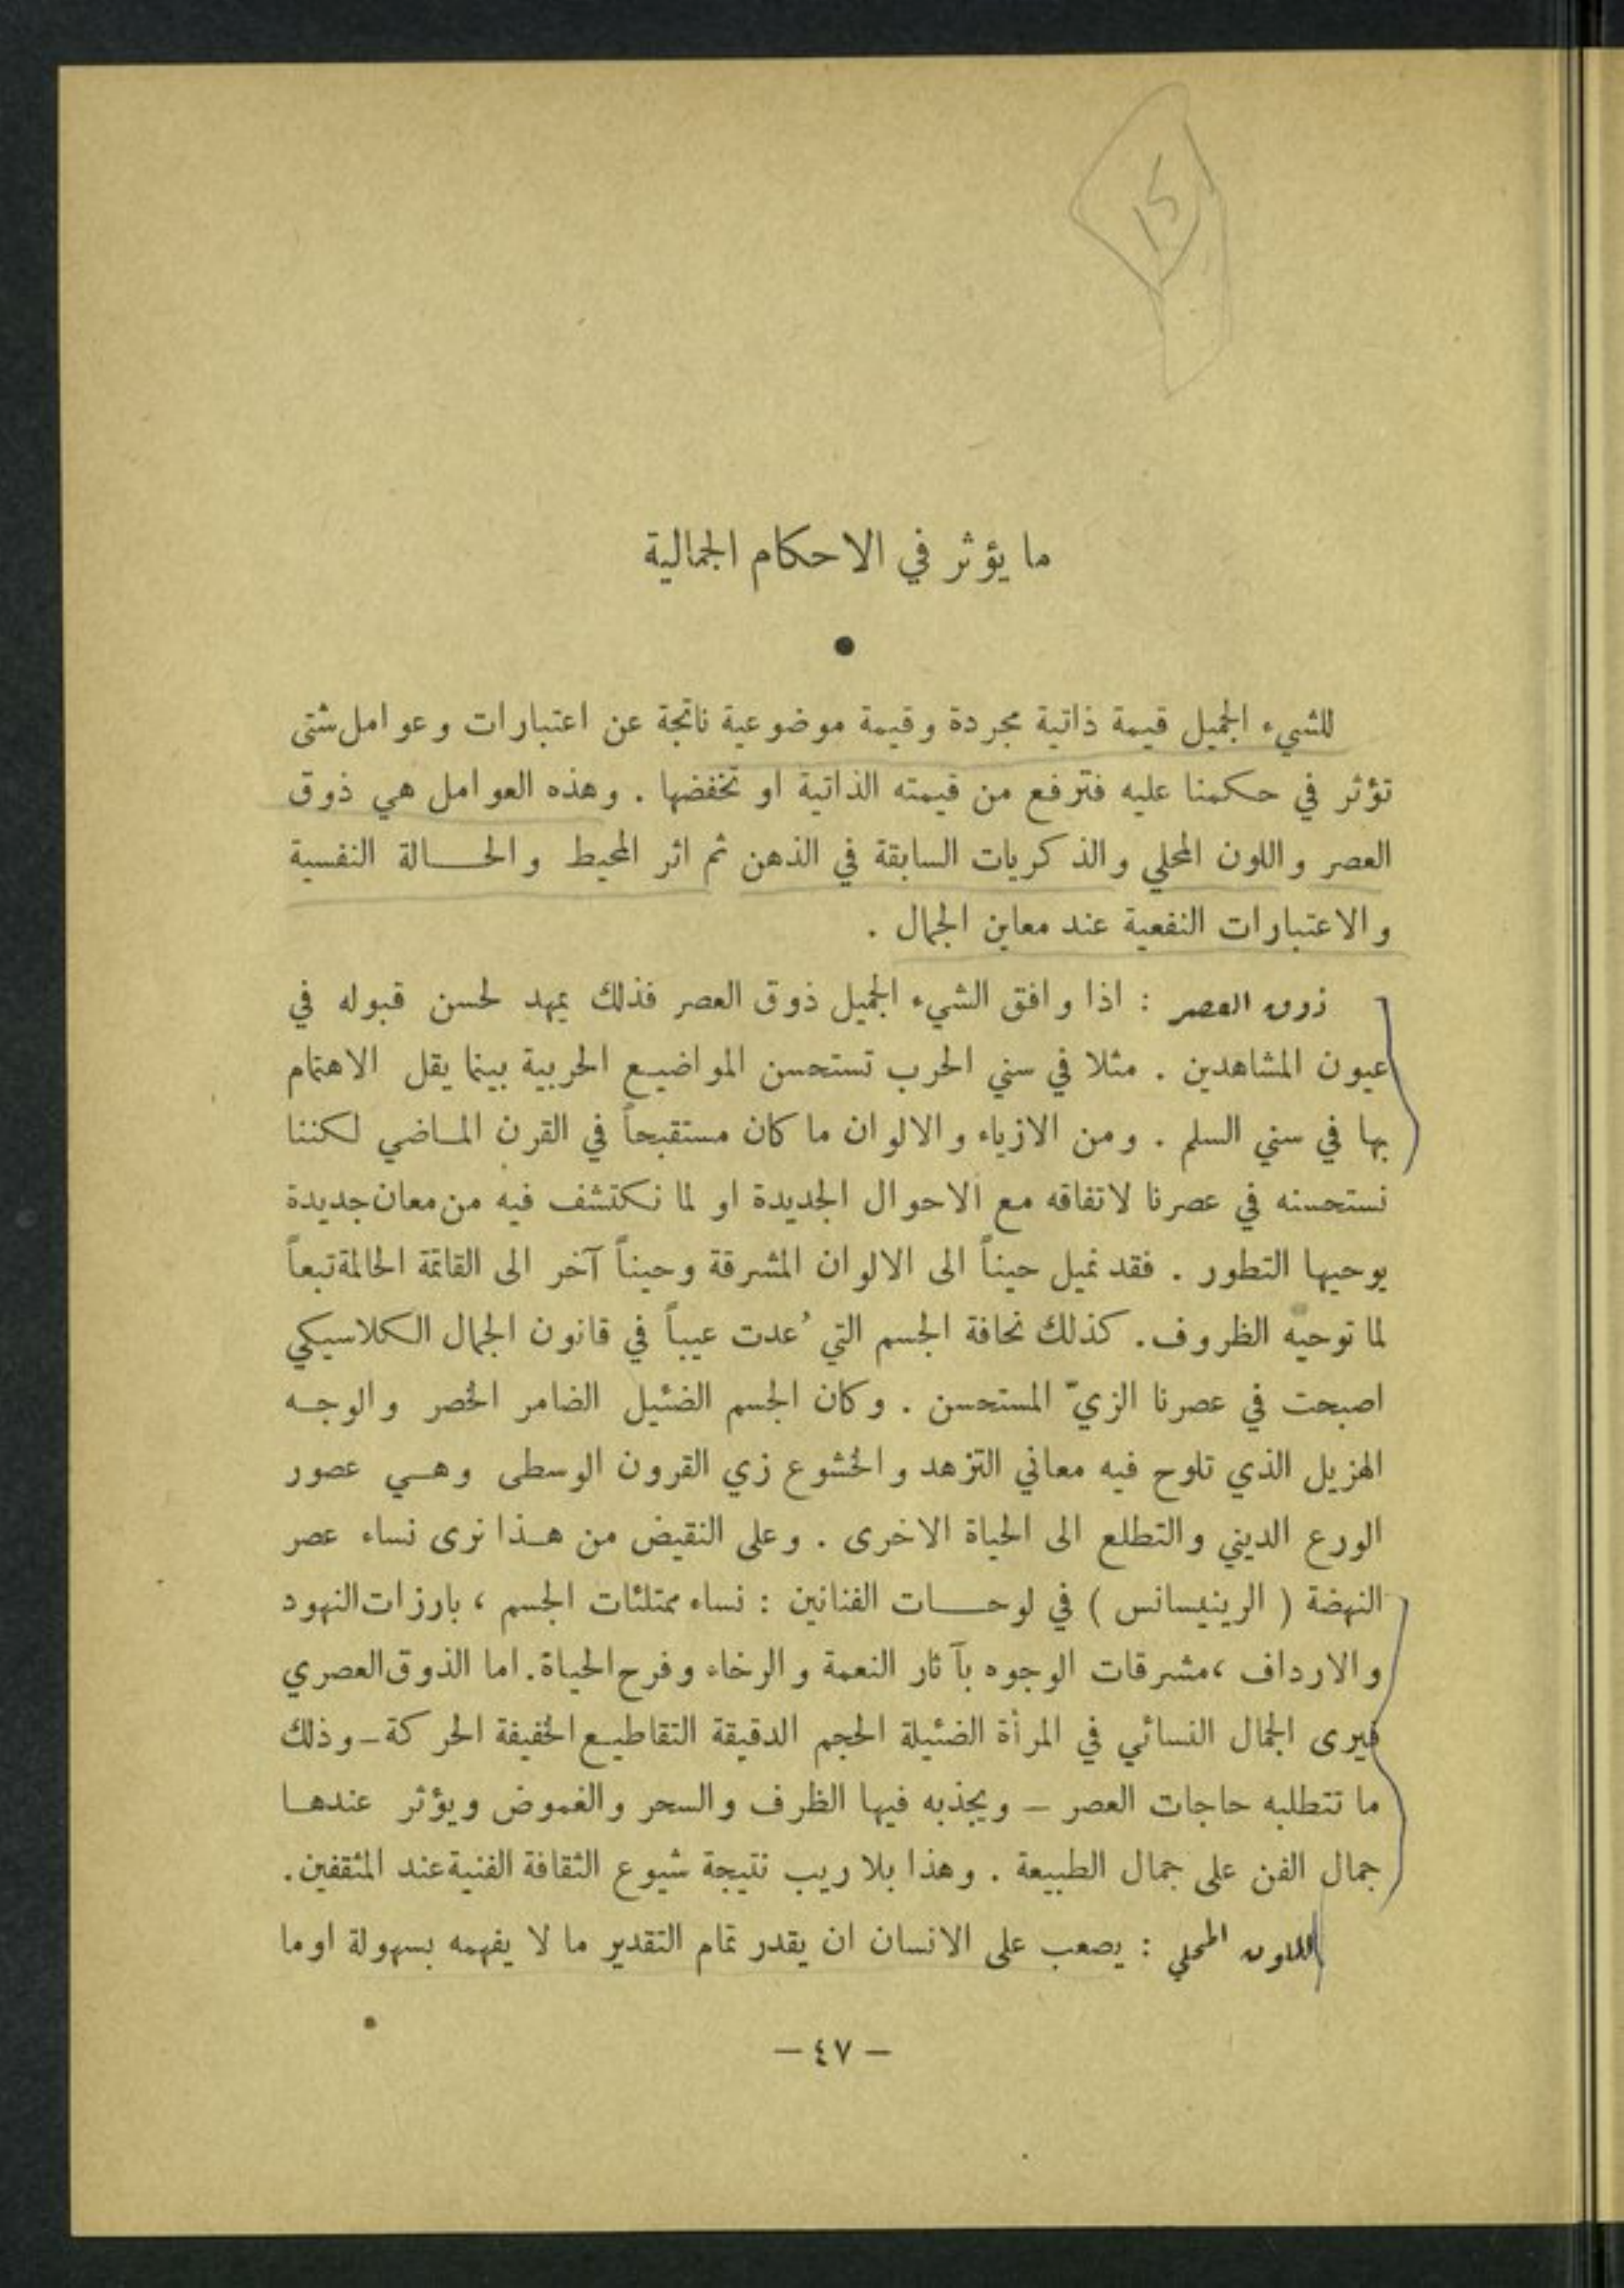 15
ما يؤثر في الاحكام الجمالية
●
للشيء الجميل قيمة ذاتية مجردة وقيمة موضوعية ناتجة عن اعتبارات وعوامل شتى
تؤثر في حكمنا عليه فترفع من قيمته الذاتية او تخفضها . وهذه العوامل هي ذوق
العصر واللون المحلي والذكريات السابقة في الذهن ثم اثر المحيط والحــالة النفسية
والاعتبارات النفعية عند معاين الجمال .
ذوق العصر : اذا وافق الشيء الجميل ذوق العصر فذلك يمهد لحسن قبوله في
عيون المشاهدين . مثلا في سني الحرب تستحسن المواضيع الحربية بينما يقل الاهتمام
بها في سني السلم . ومن الازياء والالوان ما كان مستقبحاً في القرن المـاضي لكننا
نستحسنه في عصرنا لاتفاقه مع الاحوال الجديدة او لما نكتشف فيه من معان جديدة
يوحيها التطور . فقد نميل حيناً الى الالوان المشرقة وحيناً آخر الى القاتمة الحالمة تبعاً
لما توحيه الظروف. كذلك نحافة الجسم التي ُعدت عيباً في قانون الجمال الكلاسيكي
اصبحت في عصرنا الزيّ المستحسن . وكان الجسم الضئيل الضامر الخصر والوجـه
الهزيل الذي تلوح فيه معاني التزهد والخشوع زي القرون الوسطى وهـي عصور
الورع الديني والتطلع الى الحياة الاخرى . وعلى النقيض من هـذا نرى نساء عصر
النهضة ( الرينيسانس ) في لوحــات الفنانين : نساء ممتلئات الجسم ، بارزات النهود
والارداف ،مشرقات الوجوه بآثار النعمة والرخاء وفرح الحياة. اما الذوق العصري
فيرى الجمال النسائي في المرأة الضئيلة الحجم الدقيقة التقاطيع الخفيفة الحركة – وذلك
ما تتطلبه حاجات العصر – ويجذبه فيها الظرف والسحر والغموض ويؤثر عندهـا
جمال الفن على جمال الطبيعة . وهذا بلا ريب نتيجة شيوع الثقافة الفنية عند المثقفين.
اللون المحلي : يصعب على الانسان ان يقدر تمام التقدير ما لا يفهمه بسهولة او ما
– ٤٧ –